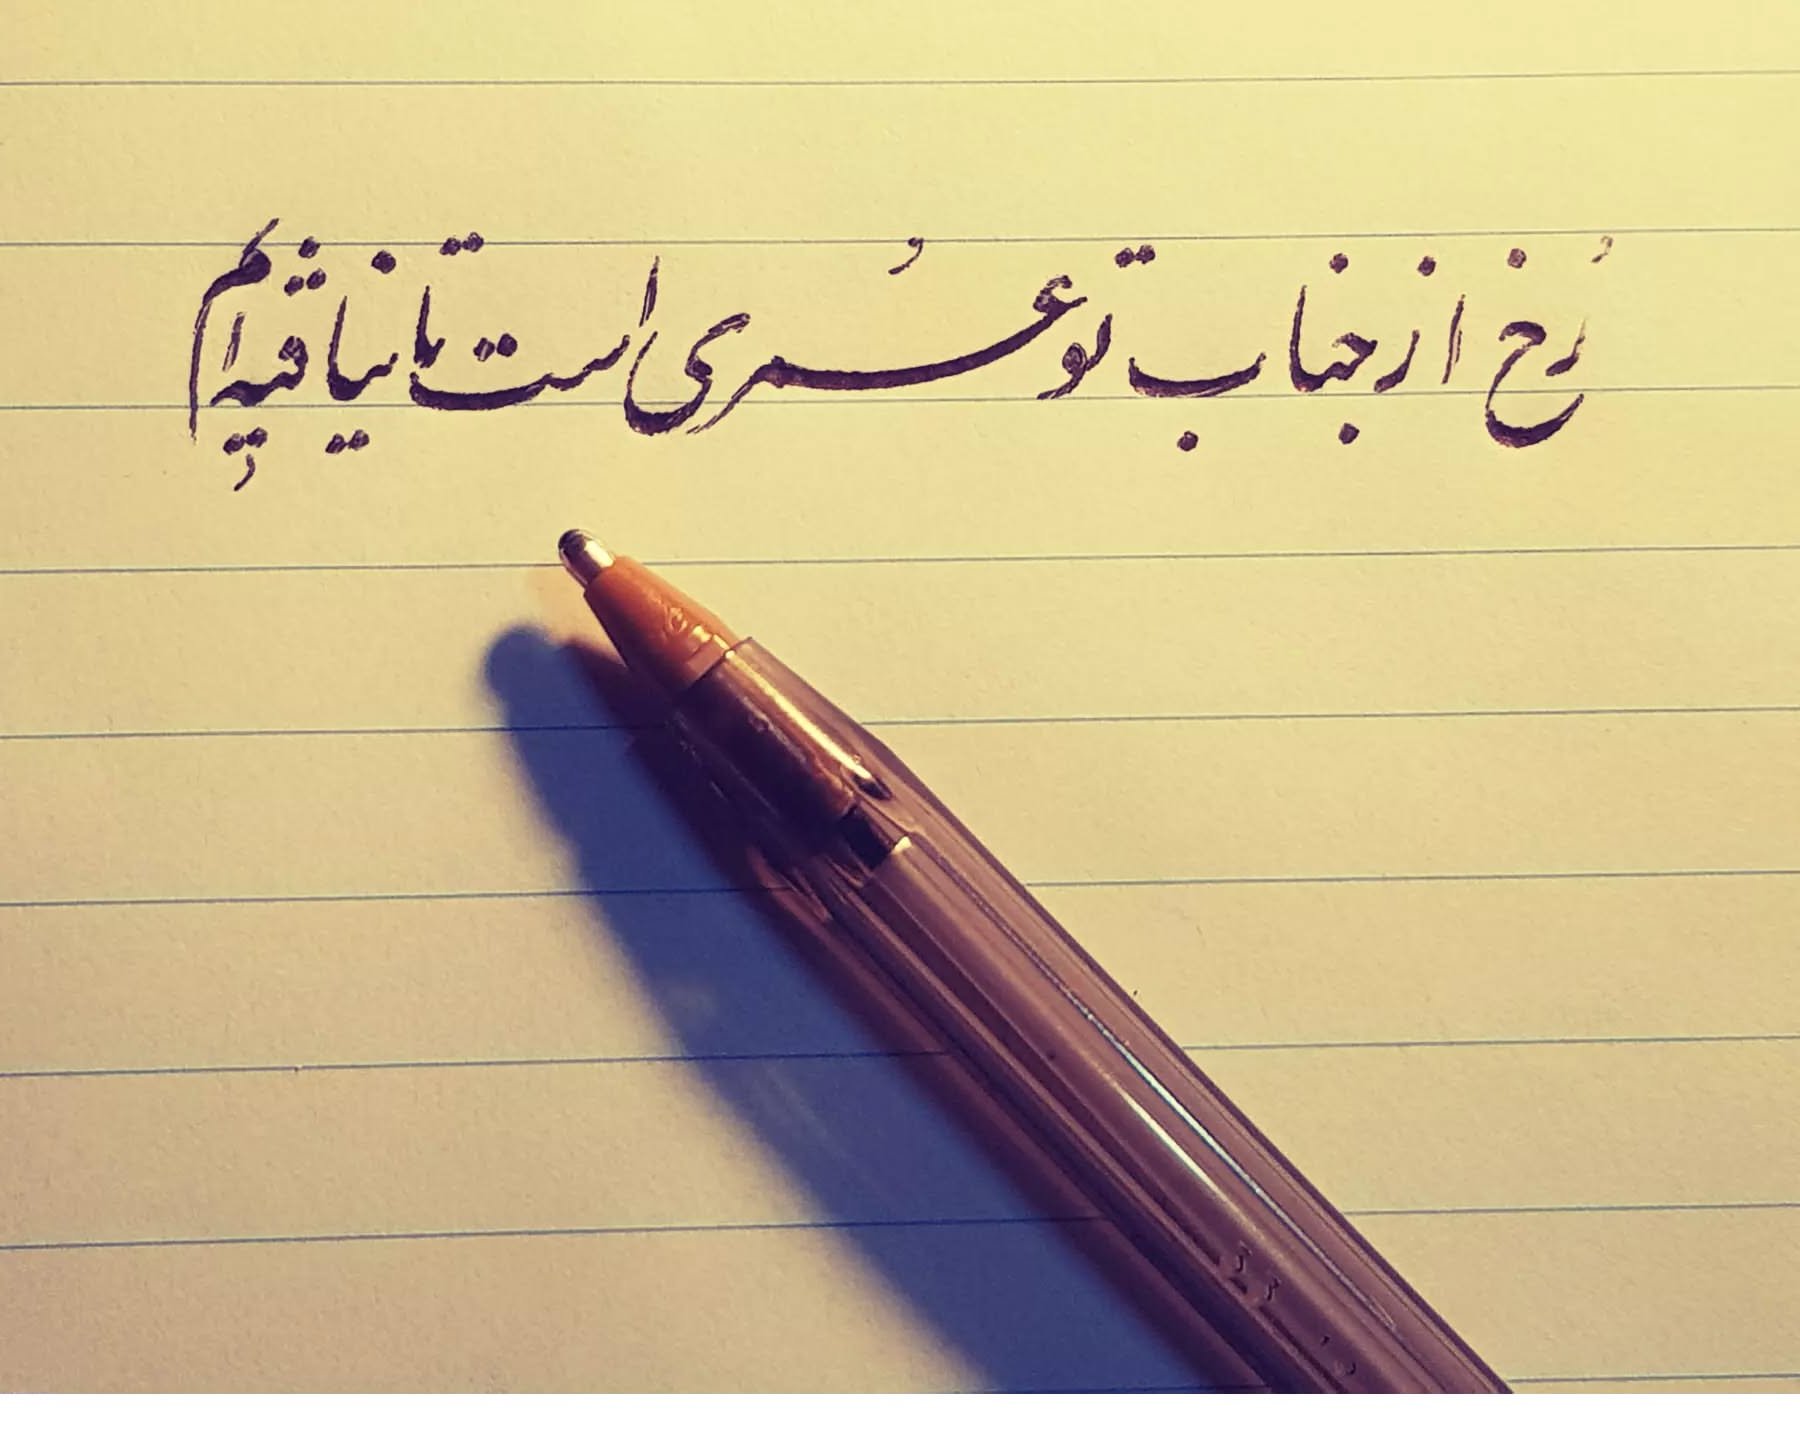 رُخ از جناب تو عُمری است تا نیافته ام